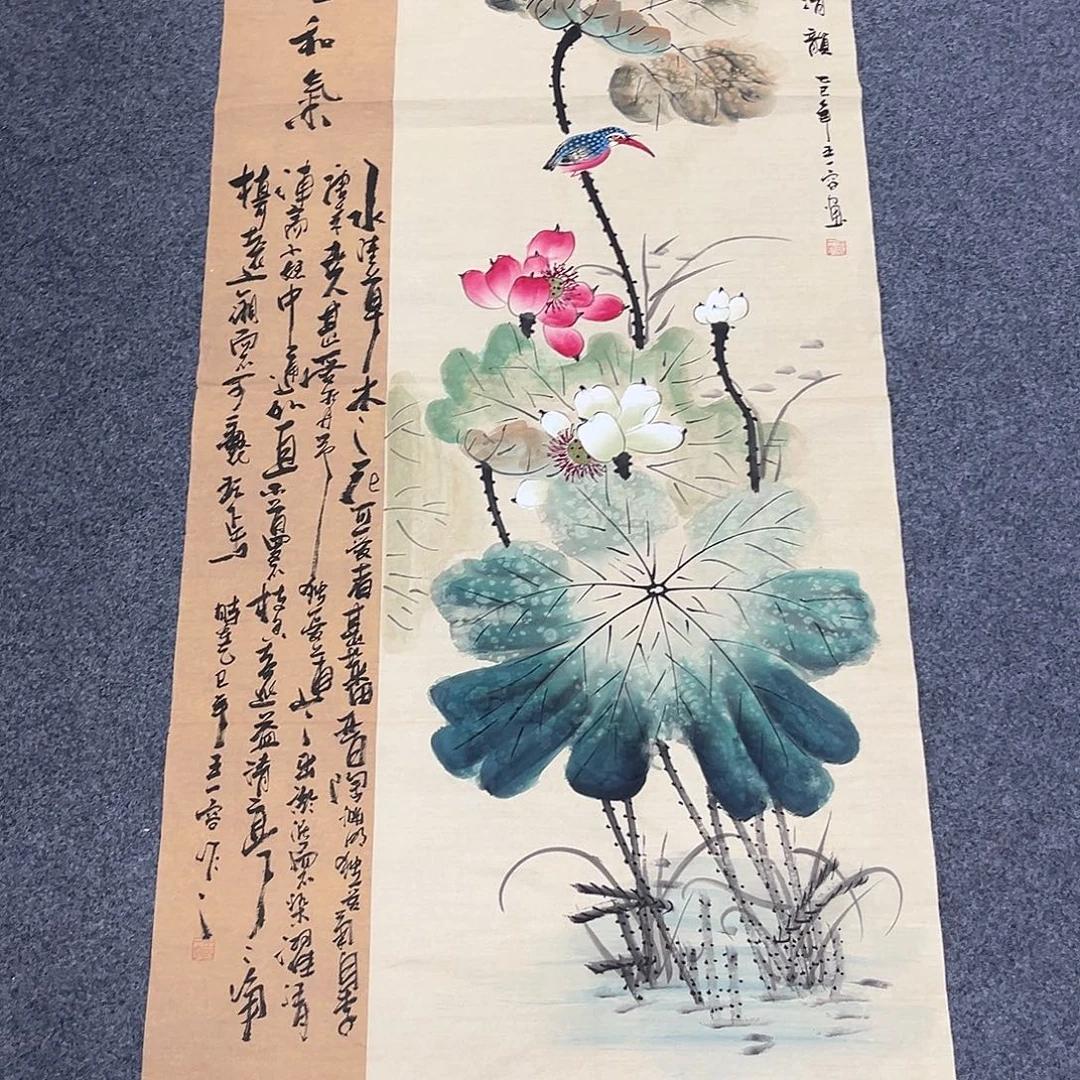 清韻
乙巳年王一容畫
和氣
水陸草木之花可愛者甚蕃晉陶淵明獨愛菊自李
唐來甚愛牡丹予獨愛蓮之出淤泥而不染濯清
漣而不妖中通外直不蔓枝香遠益清亭亭淨
植遠觀而不可褻玩焉
時在乙巳年王一容作之